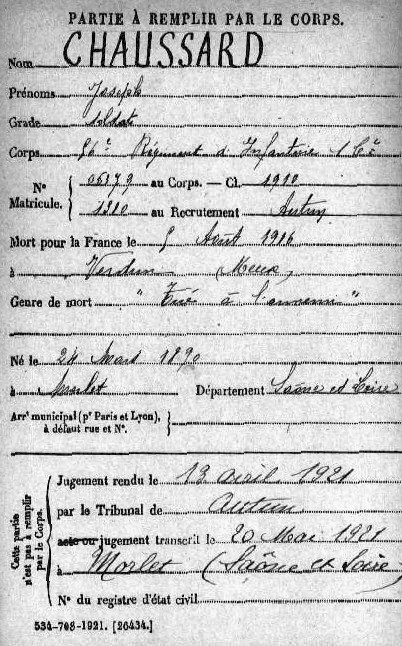 PARTIE À REMPLIR PAR LE CORPS.
Nom CHAUSSARD
Prénoms Joseph
Grade Soldat
Corps 56e Régiment d'Infanterie 1 Cie
N° Matricule. { 05379 au Corps. — Cl. 1910
1310 au Recrutement Autun
Mort pour la France le Août 1916
à Verdun (Meuse)
Genre de mort "Tué à l'ennemi"
Né le 24 Mars 1890
à Morlet Département Saône et Loire
Arrt municipal (pr Paris et Lyon), à défaut rue et N°.
Cette partie n'est pas à remplir par le Corps.
Jugement rendu le 13 avril 1921
par le Tribunal de Autun
acte ou jugement transcrit le 20 Mai 1921
à Morlet (Saône et Loire)
N° du registre d'état civil
534-708-1921. [26434.]